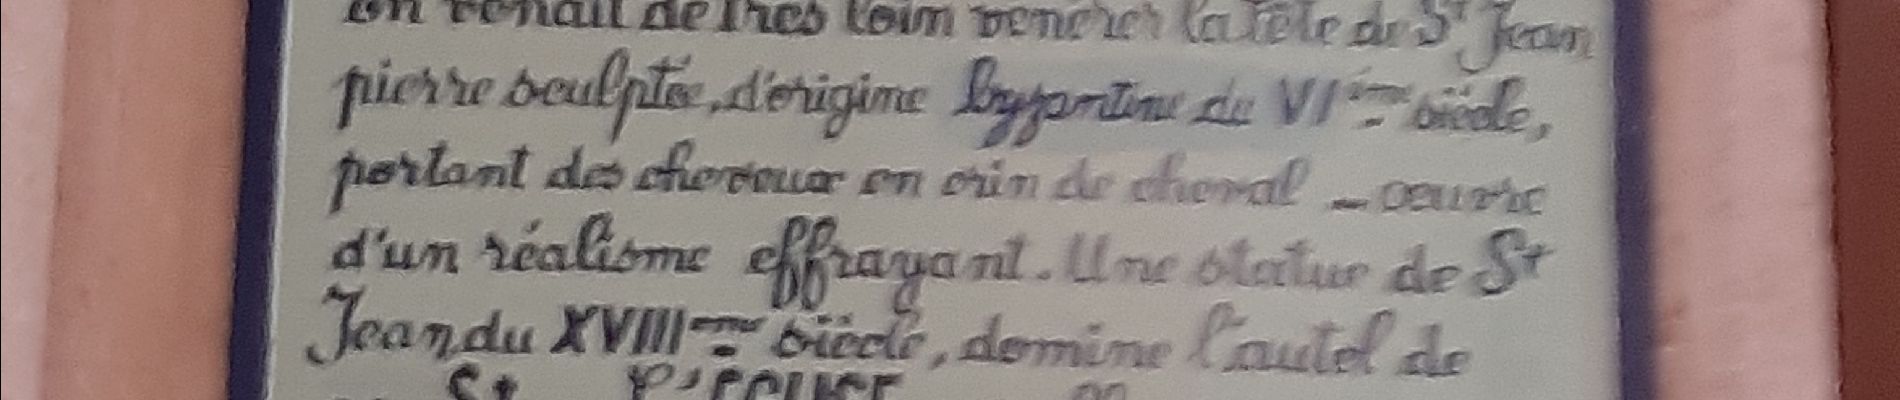 on venait de très loin vénérer la tête de St Jean
pierre sculptée, d'origine byzantine du VIème siècle,
portant des cheveux en crin de cheval - oeuvre
d'un réalisme effrayant. Une statue de St
Jean du XVIIIème siècle, domine l'autel de
St